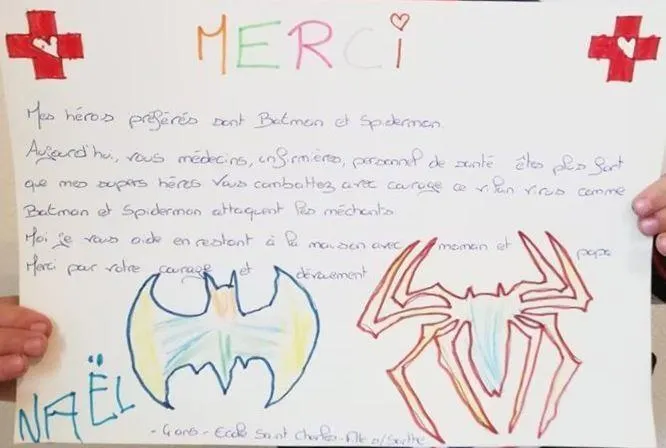 MERCI
Mes héros préférés sont Batman et Spiderman.
Aujourd'hui, vous médecins, infirmières, personnel de santé êtes plus fort
que mes supers héros Vous combattez avec courage ce vilain virus comme
Batman et Spiderman attaquent les méchants.
Moi je vous aide en restant à la maison avec maman et papa
Merci pour votre courage et dévouement
NAËL
- 4 ans - Ecole Saint Charles - Allo s/Sarthe